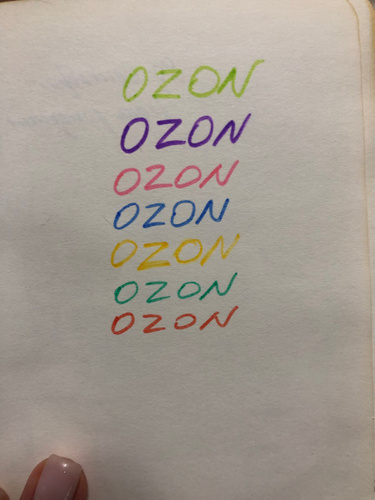 OZON
OZON
OZON
OZON
OZON
OZON
OZON